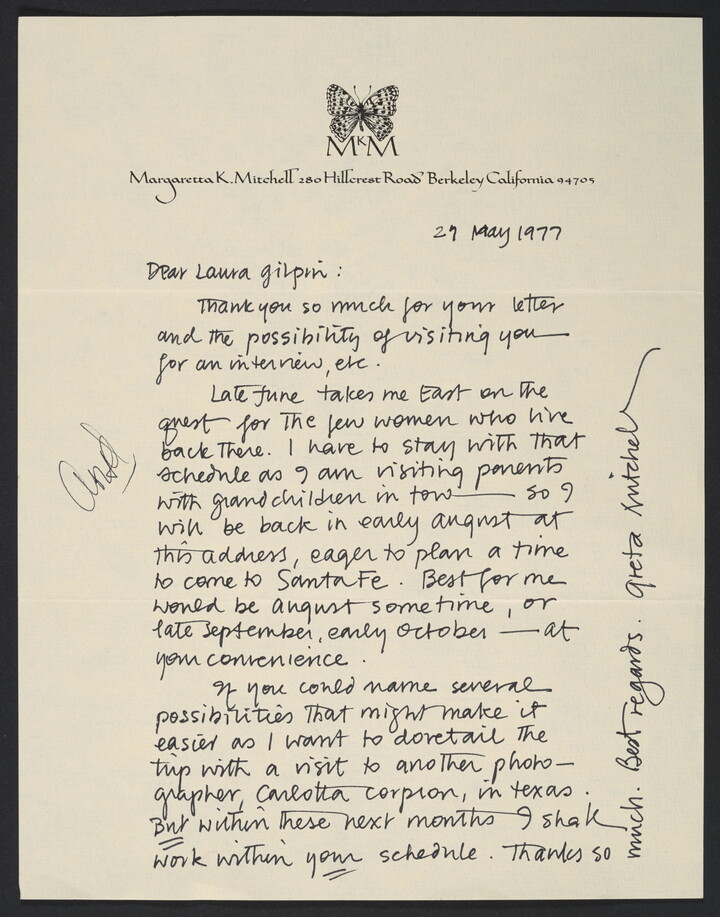 MKM
Margaretta K. Mitchell 280 Hillcrest Road Berkeley California 94705
29 May 1977
Dear Laura Gilpin:
Thank you so much for your letter
and the possibility of visiting you
for an interview, etc.
Late June takes me East on the
quest for the few women who live
back there. I have to stay with that
schedule as I am visiting parents
with grandchildren in tow — so I
will be back in early august at
this address, eager to plan a time
to come to Santa Fe. Best for me
would be august sometime, or
late September, early October — at
your convenience.
If you could name several
possibilities that might make it
easier as I want to dovetail the
trip with a visit to another photo-
grapher, Carlotta Corpron, in Texas.
But within these next months I shall
work within your schedule. Thanks so
much. Best regards. Greta Mitchell